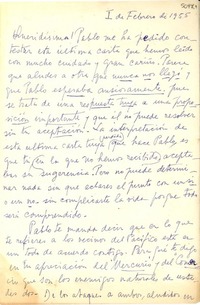 I de Febrero de 1955
Queridísima! Pablo me ha pedido con
testar esta última carta que hemos leído
con mucho cuidado y gran cariño. Parece
que aludes a otra que nunca nos llegó y
que Pablo esperaba ansiosamente, pue
se trata de una respuesta tuya a una propo
sición importante y que él no puede resolver
sin tu aceptación. La interpretación de
esta última carta tuya que hace Pablo es
que tú en la que no hemos recibido aceptabas
su sugerencia. Pero no puede determi
nar nada sin que aclares el punto con un sí
o un no. sin complicarte la vida porque todo
será comprendido.
Pablo te manda decir que en lo que
te refieres a los vecinos del Pacífico está en
un todo de acuerdo contigo. Pero que te
en tu apreciación del Mercurio y del
que son los enemigos naturales de uste
des dos. De los ataques a ambos, aludidos en